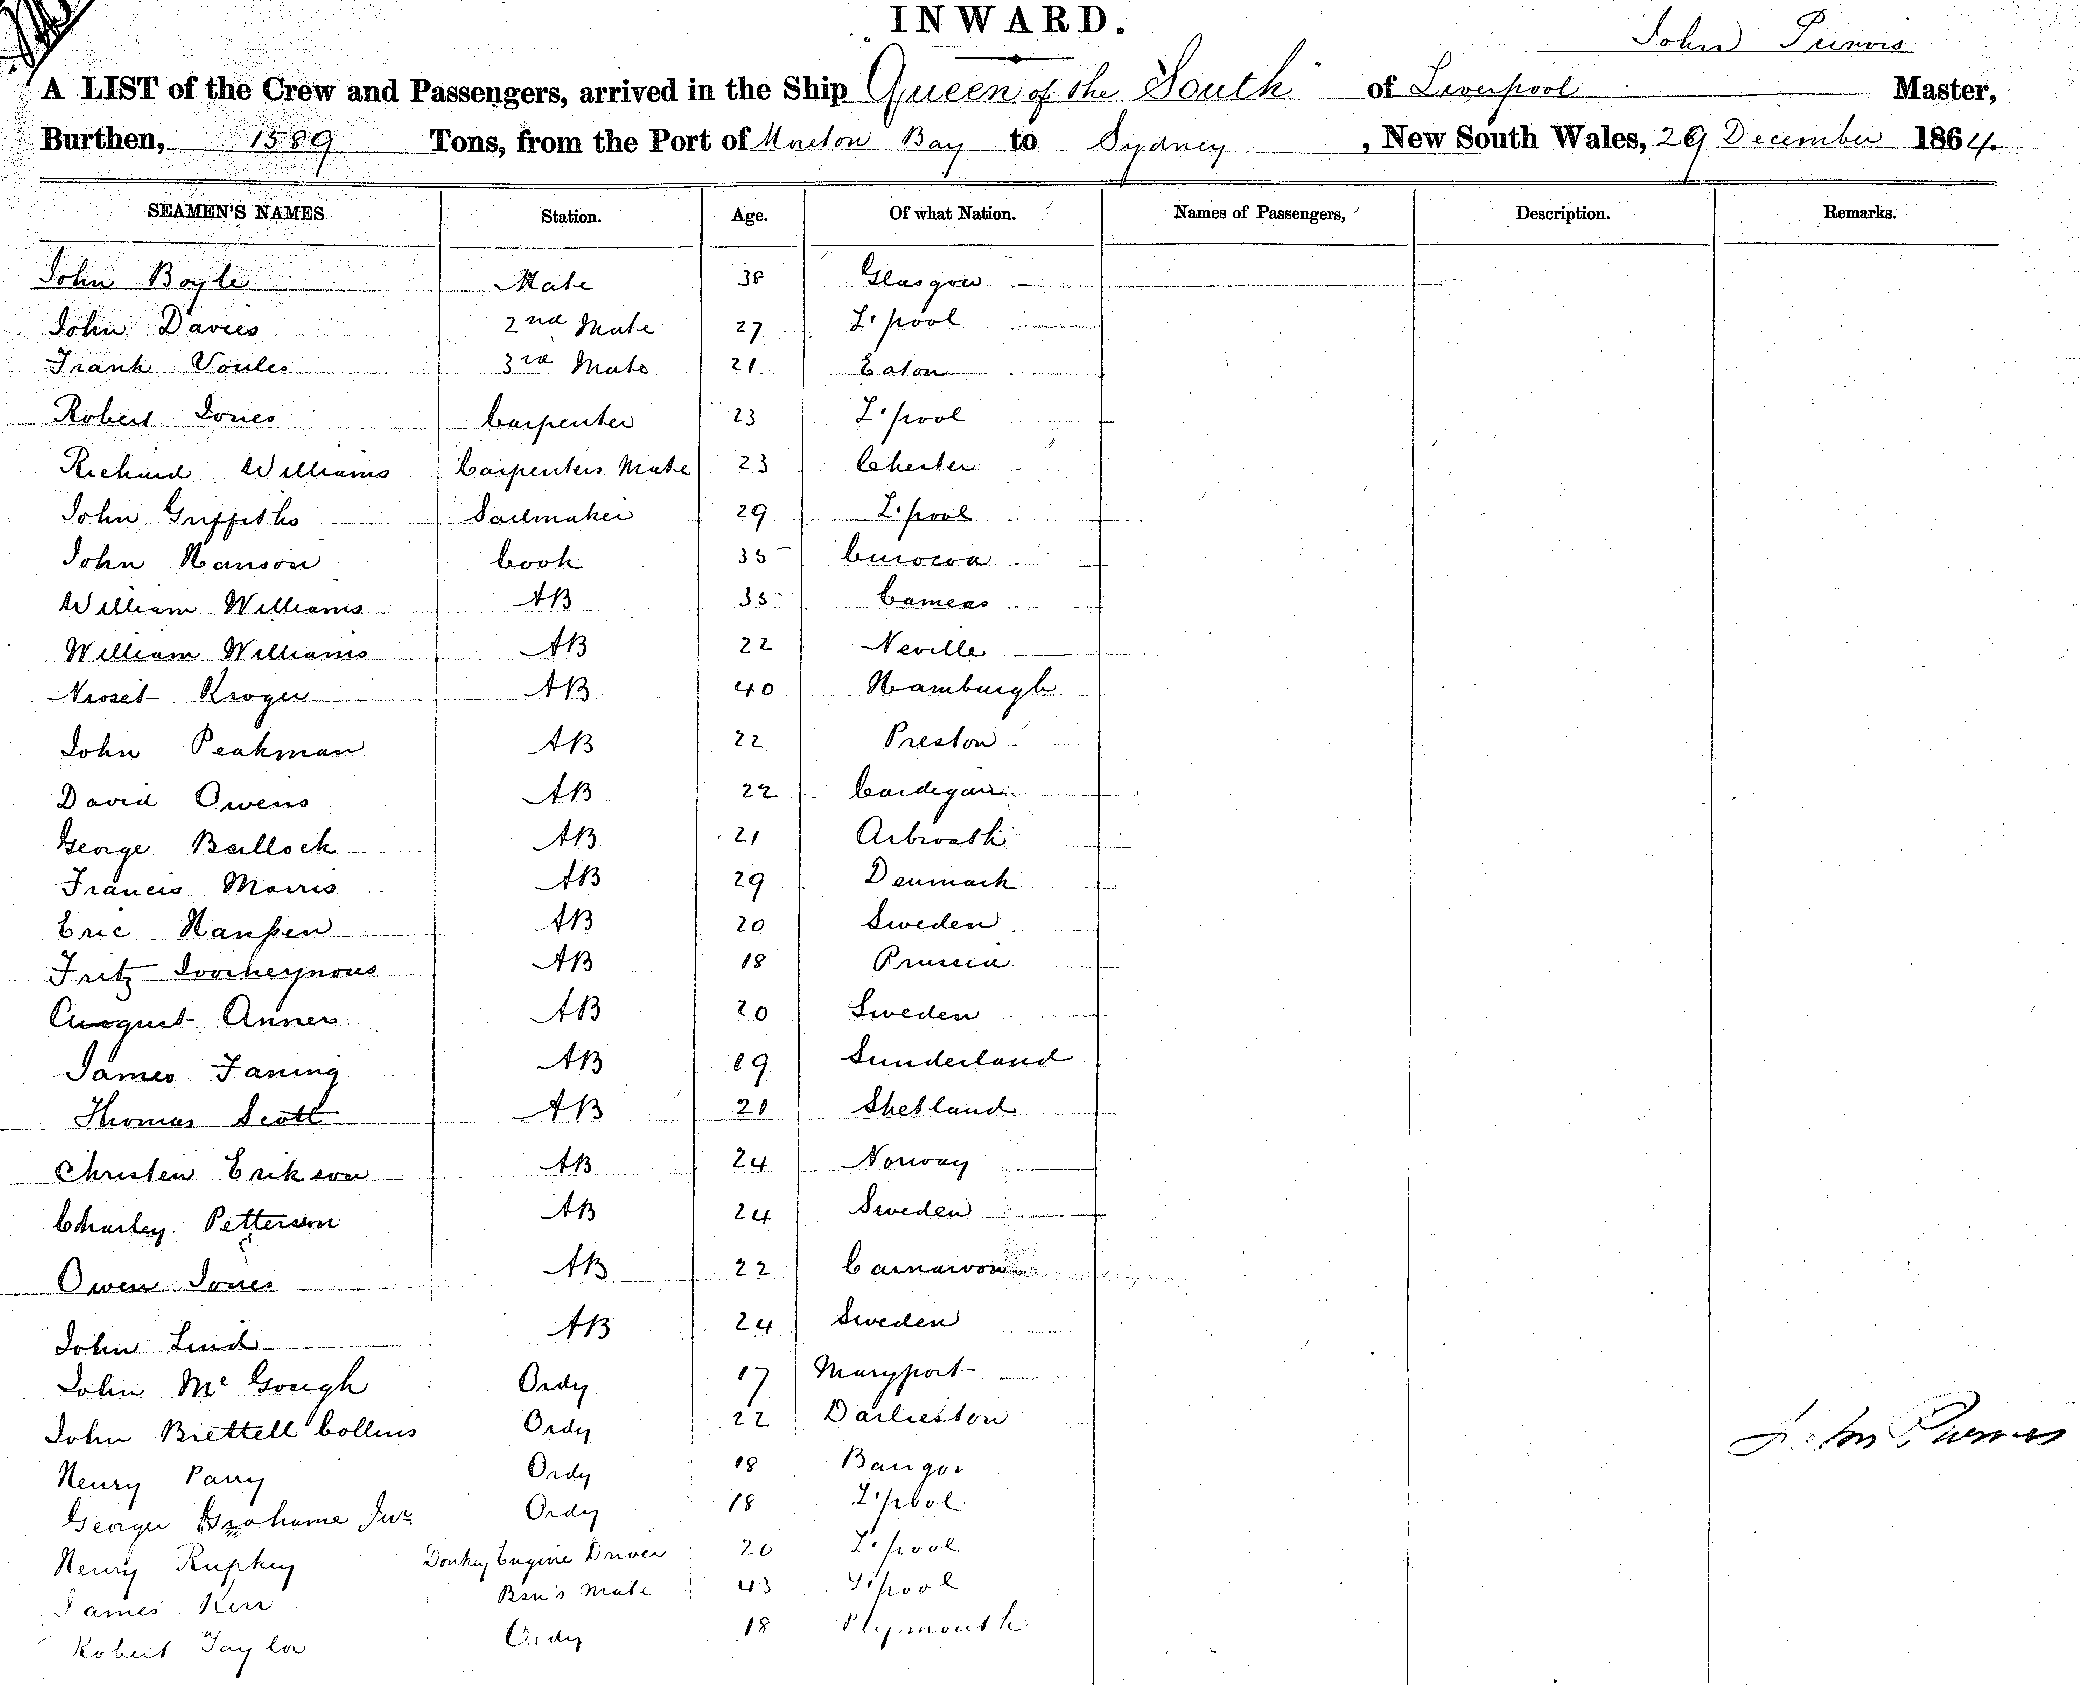 INWARD.
John Purvis
A LIST of the Crew and Passengers, arrived in the Ship Queen of the South of Liverpool Master,
Burthen, 1589 Tons, from the Port of Moreton Bay to Sydney, New South Wales, 29 December 1864.
SEAMEN'S NAMES Station. Age. Of what Nation. Names of Passengers, Description. Remarks.
John Boyle Mate 38 Glasgow
John Davies 2nd Mate 27 L'pool
Frank Voules 3rd Mate 21 Eaton
Robert Jones Carpenter 23 L'pool
Richard Williams Carpenters Mate 23 Chester
John Griffiths Sailmaker 29 L'pool
John Hanson Cook 35 Curocoa
William Williams AB 35
William Williams AB 22 Neville
Kroger AB 40 Hamburgh
John Peakman AB 22 Preston
David Owens AB 22 Cardigan
George Bullock AB 21 Arbroath
Francis Morris AB 29 Denmark
Eric Hanssen AB 20 Sweden
Fritz AB 18 Prussia
August Anner AB 20 Sweden
James Faning AB 19 Sunderland
Thomas Scott AB 21 Shetland
Christen Erikson AB 24 Norway
Charley Petterson AB 24 Sweden
Owen Jones AB 22 Carnarvon
John Lind AB 24 Sweden
John Mc Gough Ordy 17 Maryport
John Brettell Collins Ordy 22 Darlieston
Henry Parry Ordy 18 Bangor
John Purvis
George Grahame Junr Ordy 18 L'pool
Henry Rupkey Donkey Engine Driver 20 L'pool
James Kerr Bsn's Mate 43 L'pool
Robert Taylor Ordy 18 Plymouth